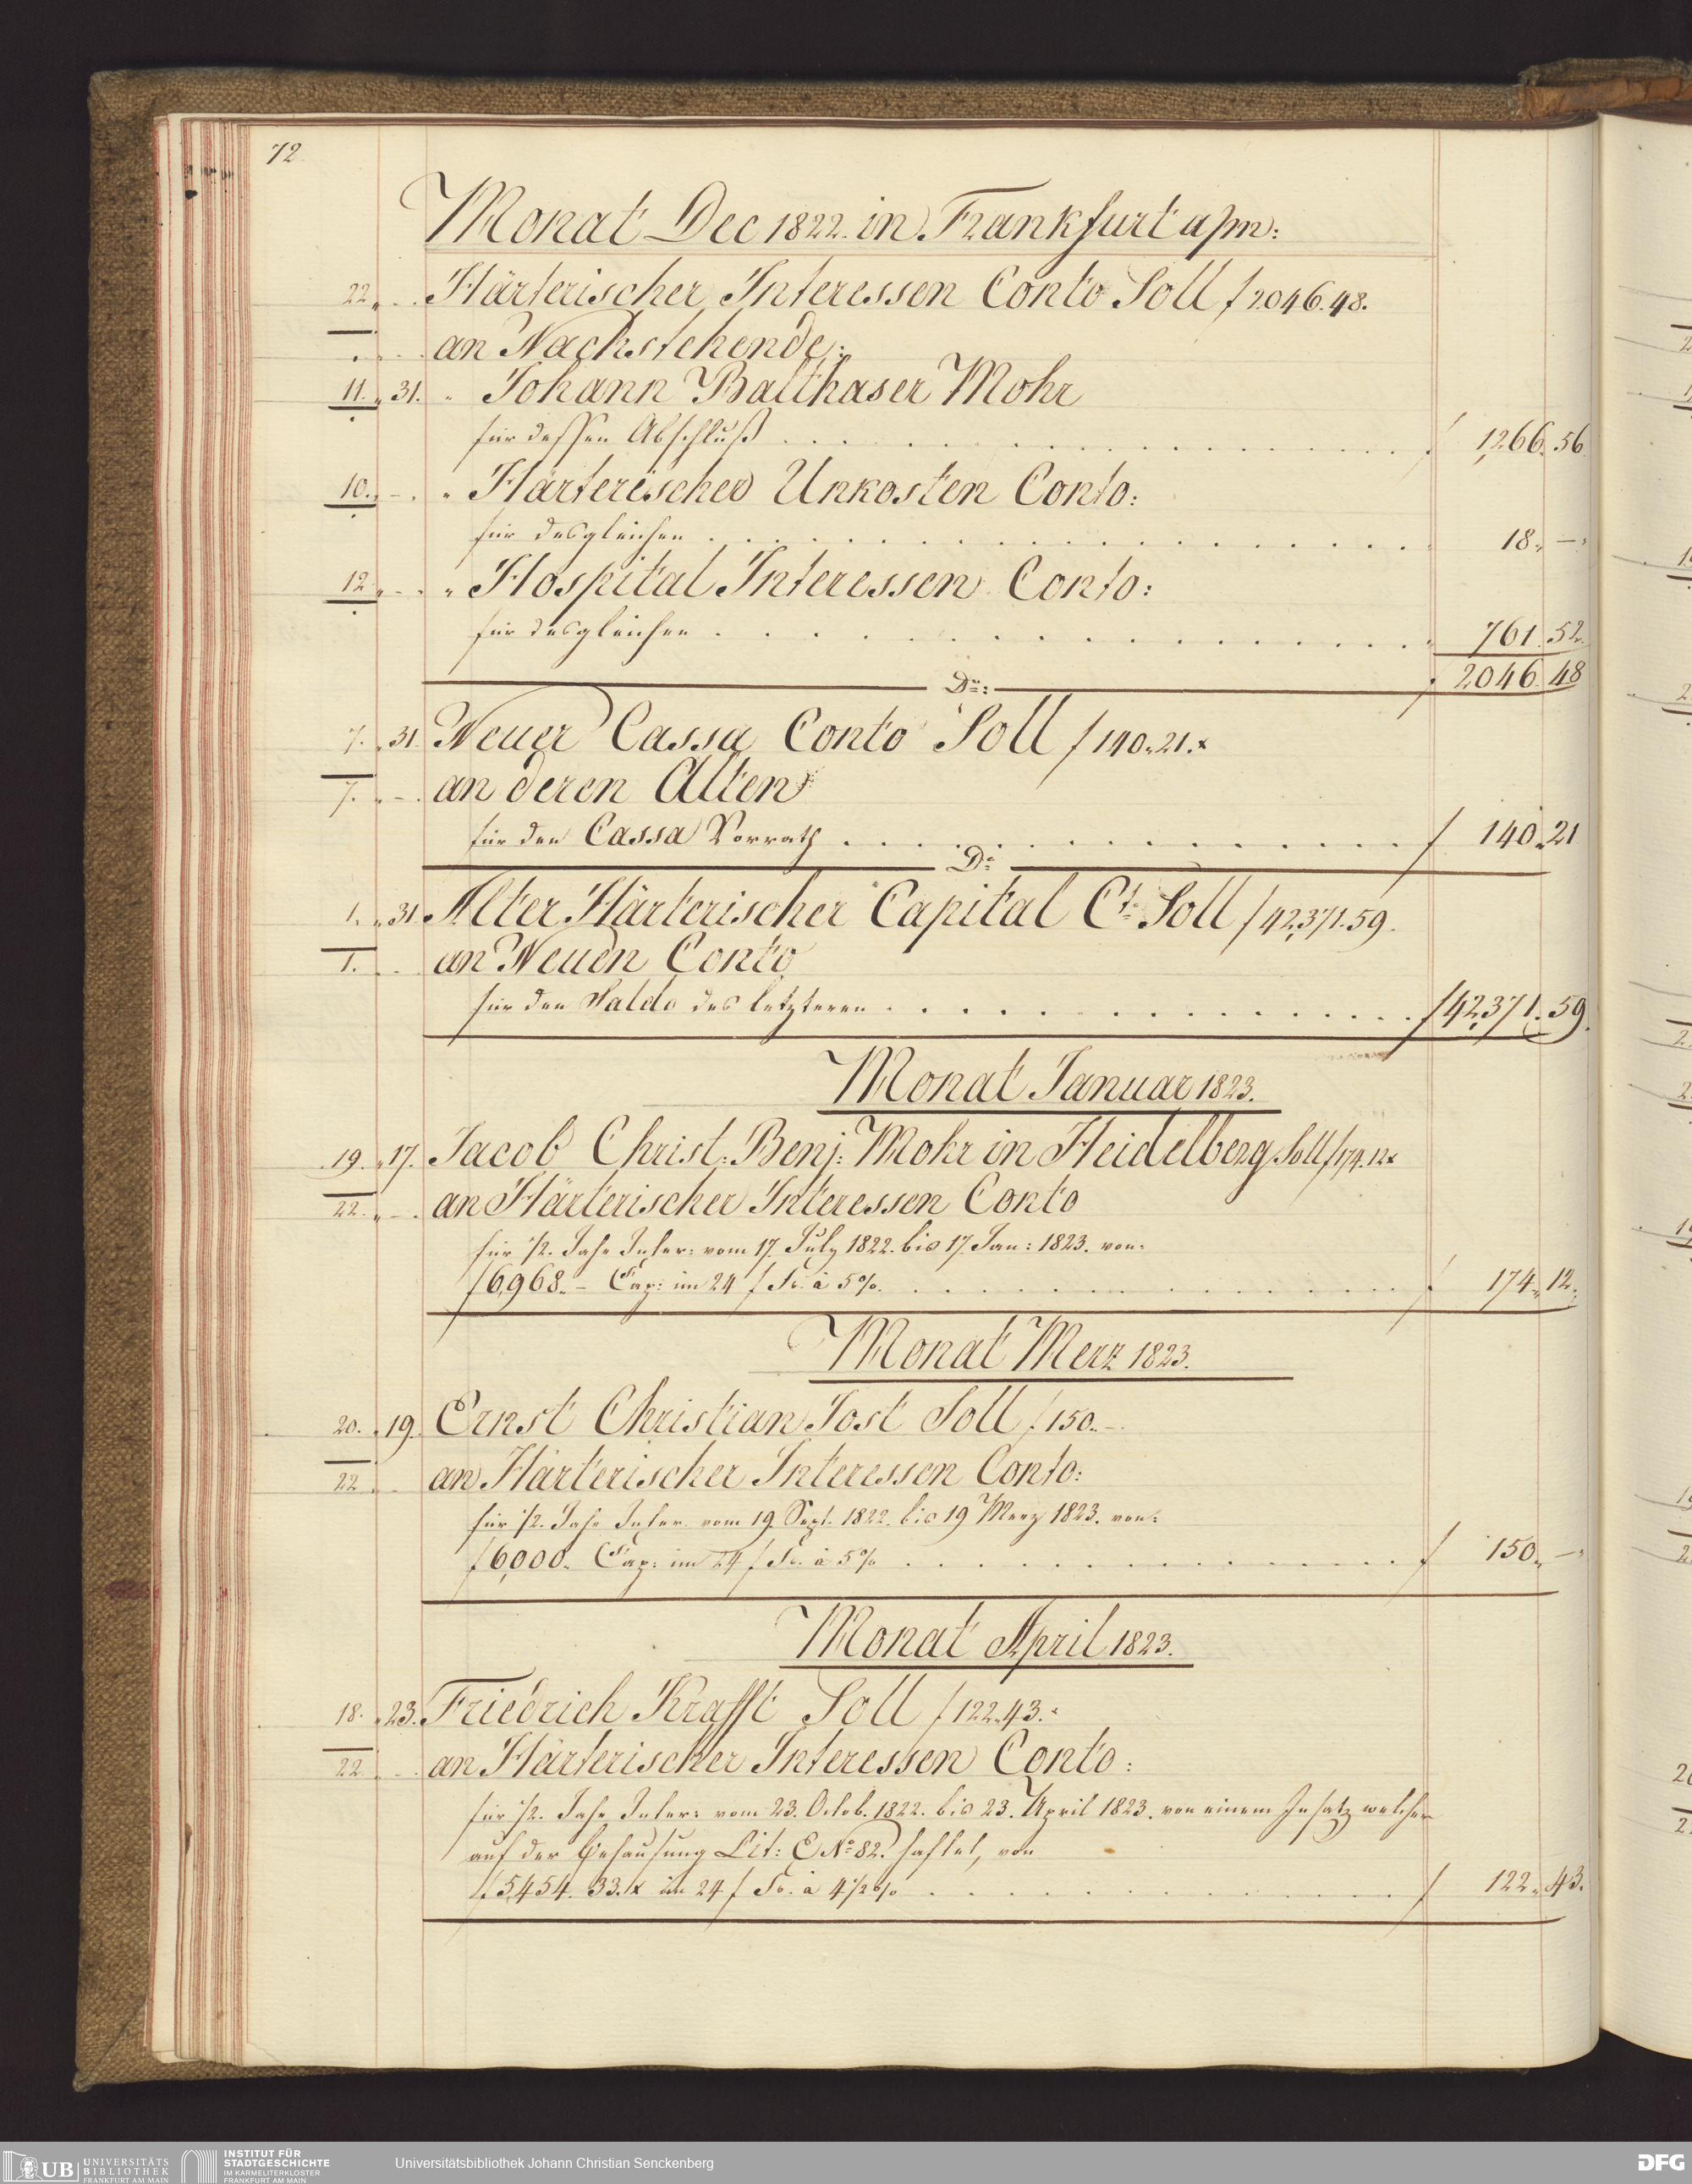 72.
Monat Dec 1822. in Frankfurt a/m:
22. Härterischer Interessen Conto Soll f 2046.48.
an Nachstehende:
11. 31. " Johann Balthaser Mohr
für dessen Abschluß f 1,266. 56.
10. " Härterischer Unkosten Conto:
für desgleichen 18. —
12. " Hospital Interessen Conto:
für desgleichen 761. 52.
f 2046. 48
Do:
7. 31. Neuer Cassa Conto Soll f 140.21.x
7. an deren Alten
für den Cassa Vorrath f 140. 21
Do
1. 31. Alter Härterischer Capital Ct. Soll f 42,371.59.
1. an Neuen Conto
für den Saldo des letzteren f 42,371. 59.
Monat Januar 1823.
19. 17. Jacob Christ: Benj: Mohr in Heidelberg Soll f 174.12x
22. an Härterischer Interessen Conto
für 1/2. Jahr Inter: vom 17. July 1822. bis 17. Jan: 1823. von.
f 6,968.– Cap: im 24 f Fs. à 5%. f 174. 12.
Monat Merz 1823.
20. 19. Ernst Christian Jost Soll f 150.–
22. an Härterischer Interessen Conto:
für 1/2. Jahr Inter. vom 19. Sept. 1822. bis 19 Merz 1823. von:
f 6,000. Cap: im 24 f Fs. à 5% f 150. —
Monat April 1823.
18. 23. Friedrich Krafft Soll f 122.43.x
22. an Härterischer Interessen Conto:
für 1/2. Jahr Inter: vom 23. Octob. 1822. bis 23. April 1823. von einem Insatz welcher
auf der Behausung Lit: E No 82. haftet, von
f. 5,454. 33.x im 24 f Fs. à 4 1/2% f 122. 43.
UB UNIVERSITÄTS BIBLIOTHEK FRANKFURT AM MAIN
INSTITUT FÜR STADTGESCHICHTE IM KARMELITERKLOSTER FRANKFURT AM MAIN
Universitätsbibliothek Johann Christian Senckenberg
DFG